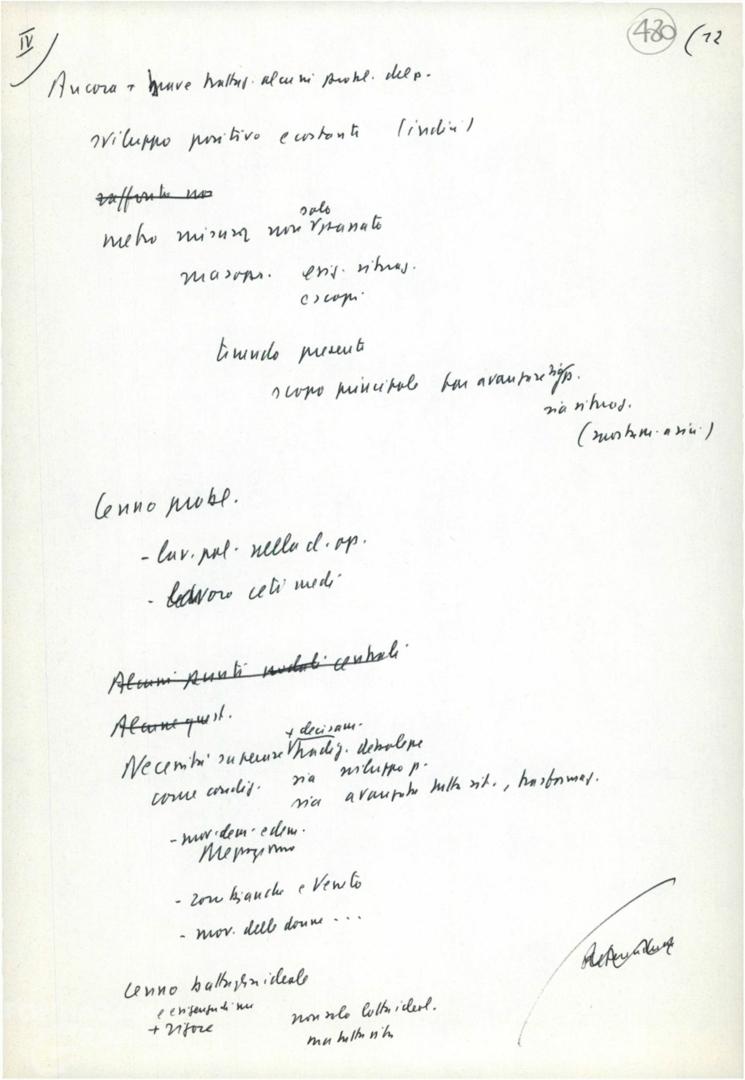 IV)
480 (12
Ancora + breve trattaz. alcuni probl. del p.
sviluppo positivo e costante (indici)
raffronto no
solo
metro misura non passato
ma sopr. esig. situaz.
e scopi
tenendo presente
scopo principale far avanzare
sia situaz.
Cenno probl.
- lav. pol. nella cl. op.
- lavoro ceti medi
Alcuni punti nodali centrali
Alcune quest.
+ decisam.
Necessità superare debolezze
come condiz. sia sviluppo p.
sia avanzata tutta sit., trasformaz.
- mov. dem. e dem.
Mezzogiorno
- zone bianche e Veneto
- mov. delle donne ...
Cenno battaglia ideale
+ rigore
non solo lotta ideol.
ma tutta vita